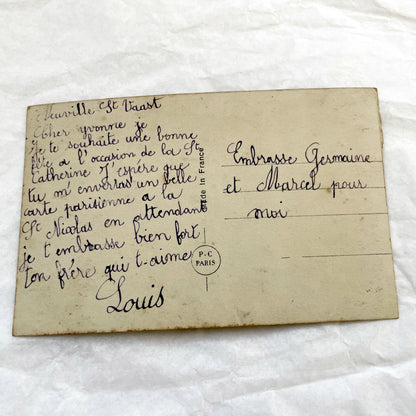 Neuville St Vaast
Cher Yvonne je
te te souhaite une bonne
fête a l'occasion de la Ste
Catherine J'espère que
tu m'enverras un belle
carte parisienne a la
St Nicolas en attendant
je t'embrasse bien fort
ton frère qui t-aime
Louis
Made in France
P-C
PARIS
Embrasse Germaine
et Marcel pour
moi